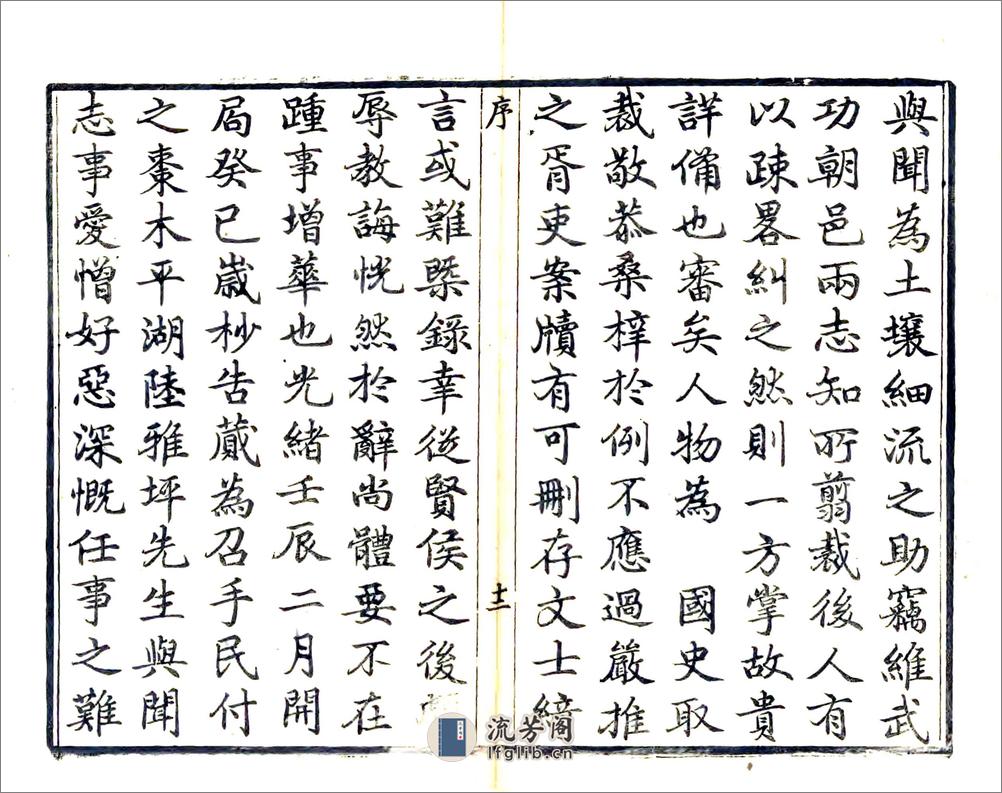 與聞為土壤細流之助竊維武
功朝邑兩志知所翦裁後人有
以疎畧糾之然則一方掌故貴
詳備也審矣人物為　國史取
裁敬恭桑梓於例不應過嚴推
之胥吏案牘有可刪存文士綺
序
十二
言或難槩錄幸從賢侯之後
辱教誨恍然於辭尚體要不在
踵事增華也光緒壬辰二月開
局癸巳歲杪告蕆為召手民付
之棗木平湖陸雅坪先生與聞
志事愛憎好惡深慨任事之難
流芳阁
lfglib.cn